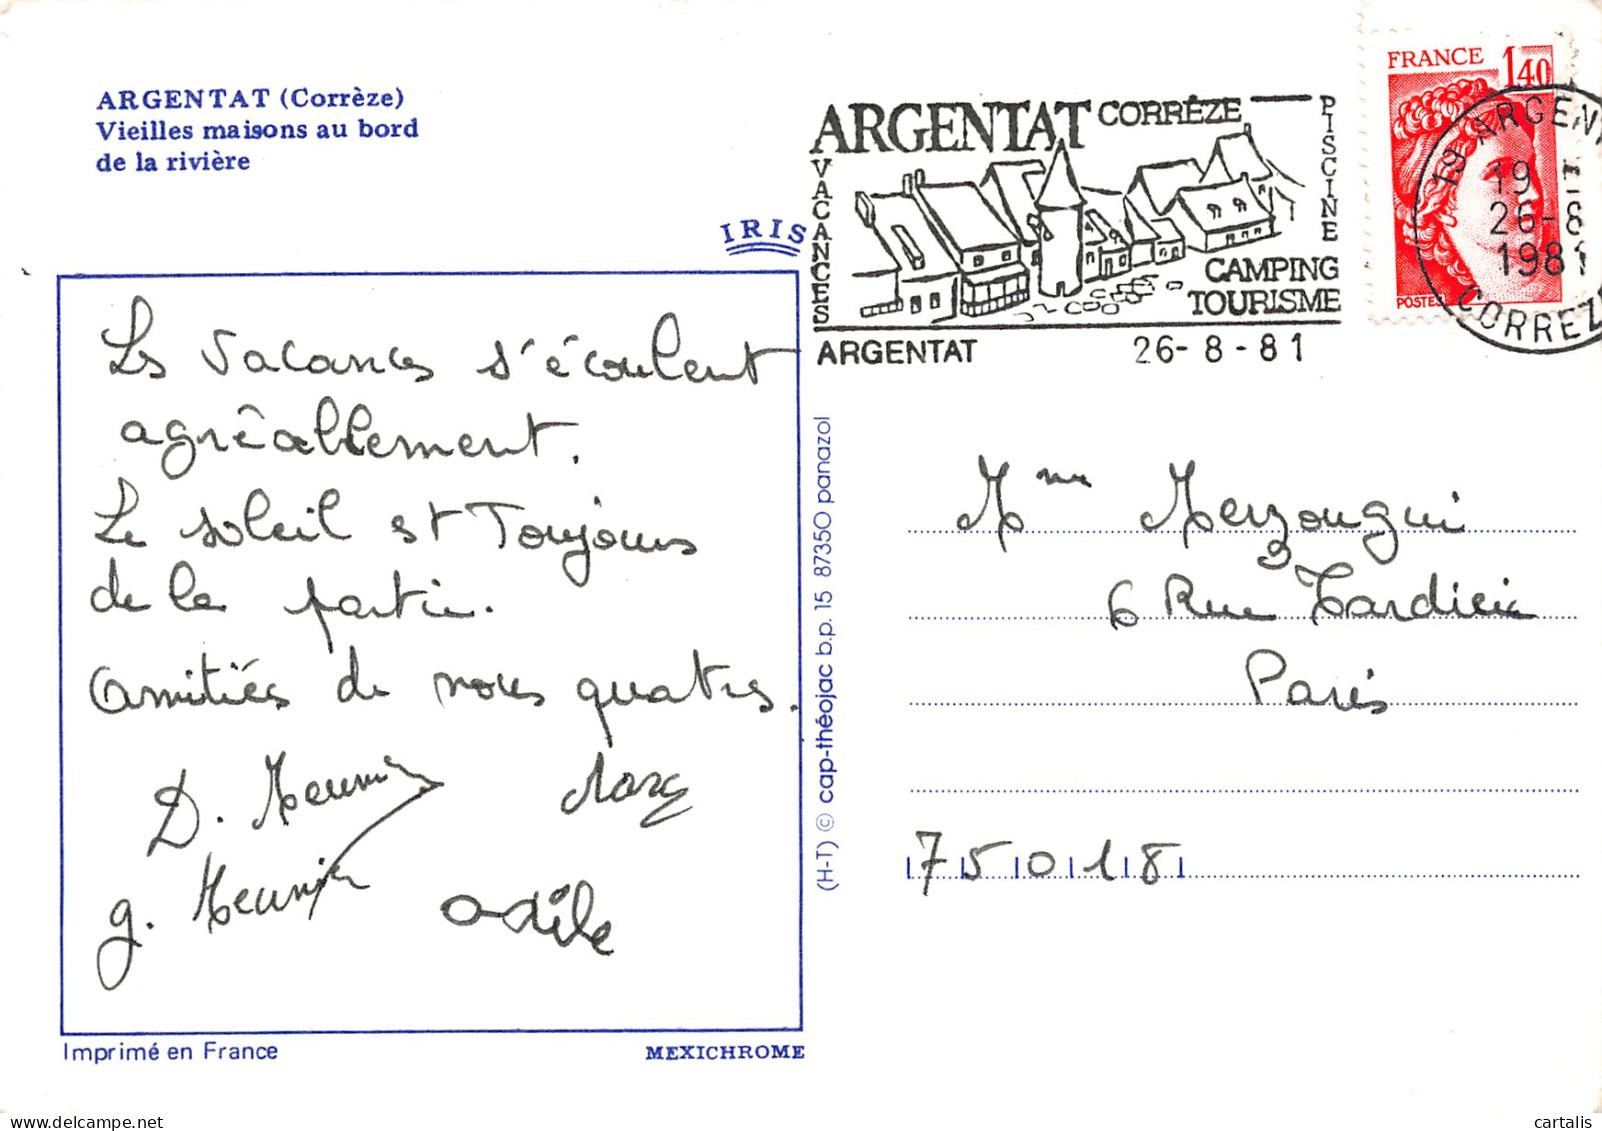 ARGENTAT (Corrèze)
Vieilles maisons au bord
de la rivière
IRIS
Les vacances s'écoulent
agréablement.
Le soleil est toujours
de la partie.
Amitiés de nous quatres.
D. Meunier Marc
g. Meunier Odile
Imprimé en France
MEXICHROME
(H-T) © cap-théojac b.p. 15 87350 panazol
ARGENTAT CORRÈZE
VACANCES
PISCINE
CAMPING
TOURISME
ARGENTAT 26-8-81
FRANCE 1,40
POSTES
19 ARGENT
19 H
26-8
1981
CORREZE
Mme Merzougui
6 Rue Tardieu
Paris
75018
cartalis sur www.delcampe.net